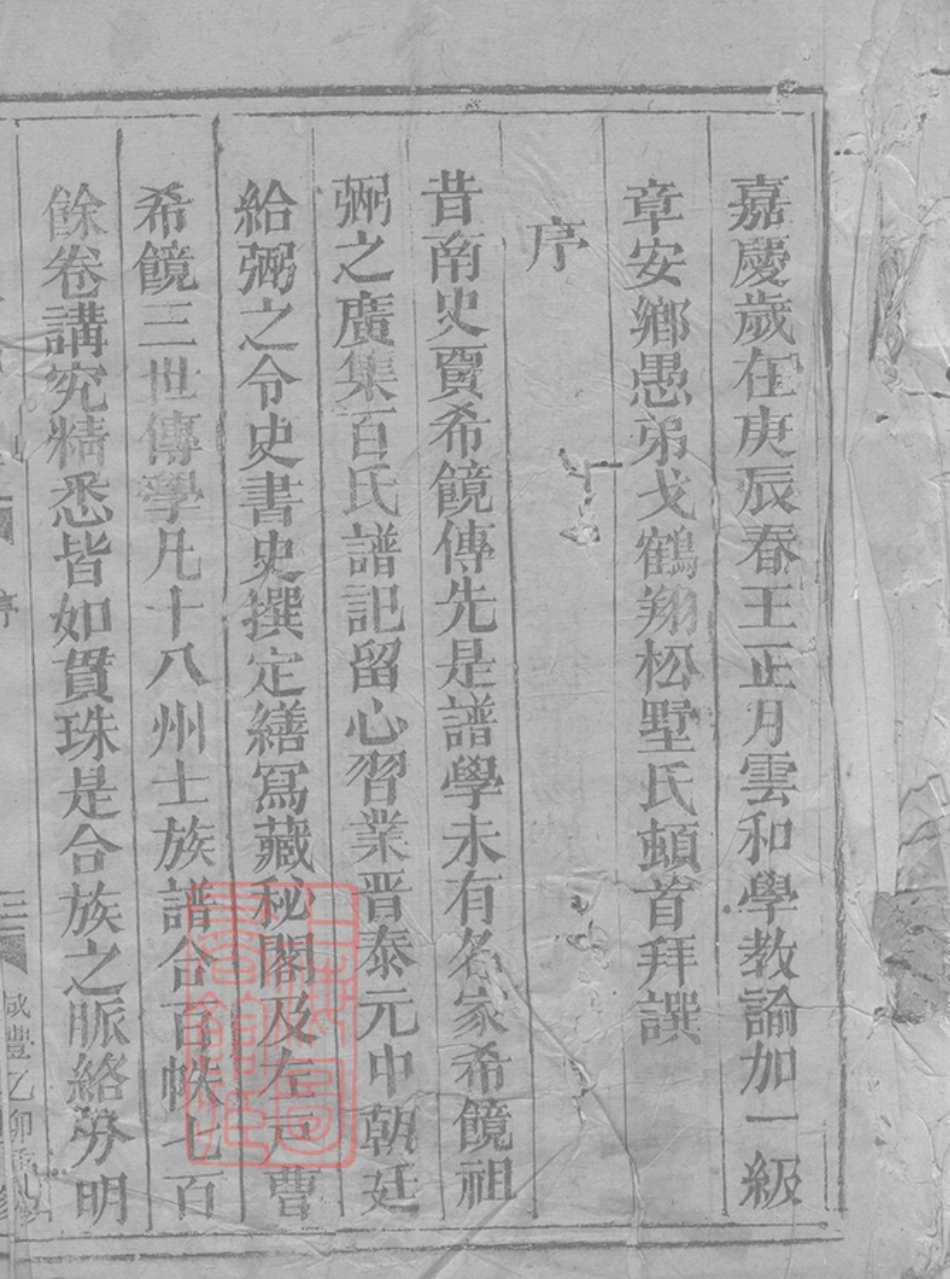 嘉慶歲在庚辰春王正月雲和學教諭加一級
章安鄉愚弟戈鶴翔松墅氏頓首拜譔
序
昔南史賈希鏡傳先是譜學未有名家希鏡祖
弼之廣集百氏譜記留心習業晋泰元中朝廷
給弼之令史書史撰定繕寫藏秘閣及左戶曹
希鏡三世傳學凡十八州士族譜合百帙七百
餘卷講究精悉皆如貫珠是合族之脈絡分明
序
三
咸豐乙卯重修